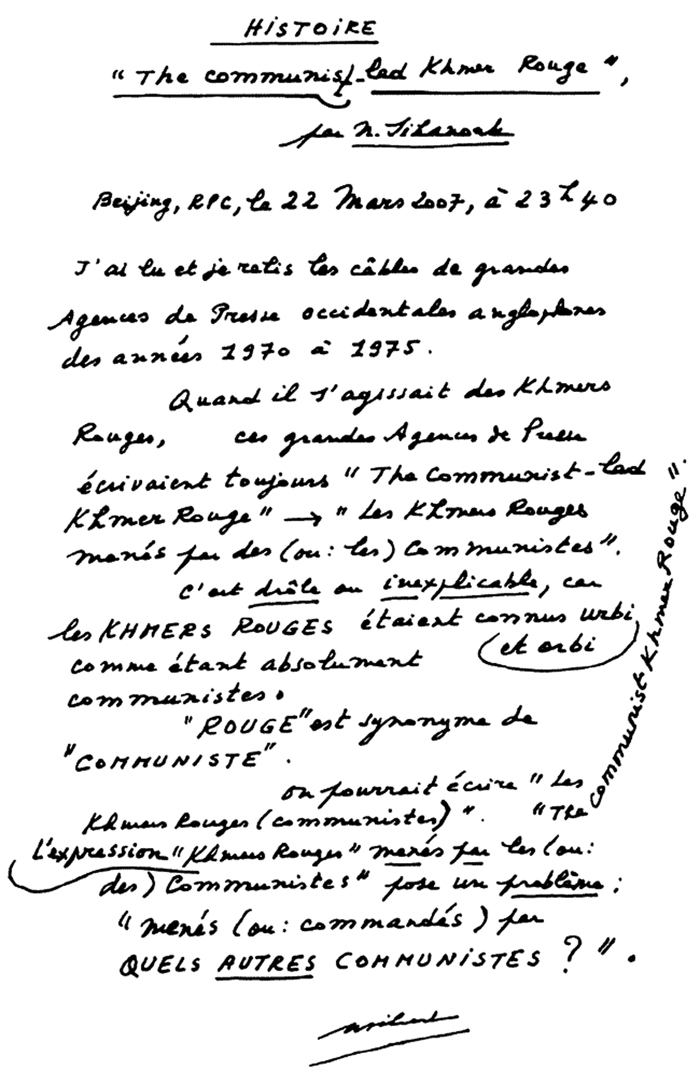 HISTOIRE
"The communist-led Khmer Rouge",
par N. Sihanouk
Beijing, RPC, le 22 Mars 2007, à 23h40
J'ai lu et je relis les câbles de grandes
Agences de Presse occidentales anglophones
des années 1970 à 1975.
Quand il s'agissait des Khmers
Rouges, ces grandes Agences de Presse
écrivaient toujours "The Communist-led
Khmer Rouge" → "Les Khmers Rouges
menés par des (ou : les) Communistes".
C'est drôle ou inexplicable, car
les KHMERS ROUGES étaient connus urbi
et orbi
comme étant absolument
communistes.
"ROUGE" est synonyme de
"COMMUNISTE".
On pourrait écrire "Les
Khmers Rouges (communistes)". "The
Communist Khmer Rouge".
L'expression "Khmers Rouges" menés par les (ou :
des) Communistes" pose un problème :
"menés (ou : commandés) par
QUELS AUTRES COMMUNISTES ?".